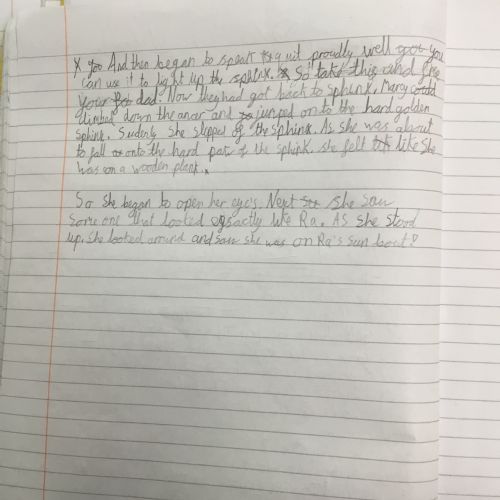 x you And then began to speak quit proudly well you
can use it to light up the sphink. So take this and free
your dad. Now they had got back to sphink, Mary could
climbed down the and jumped onto the hard golden
sphink. Sudenly She slipped of the sphink. As she was about
to fall onto the hard part of the sphink. she felt like She
was on a wooden plank.
So She began to open her eye's. Next She saw
Some one that looked like Ra. As She stood
up. She looked around and saw she was on Ra's sun boat!